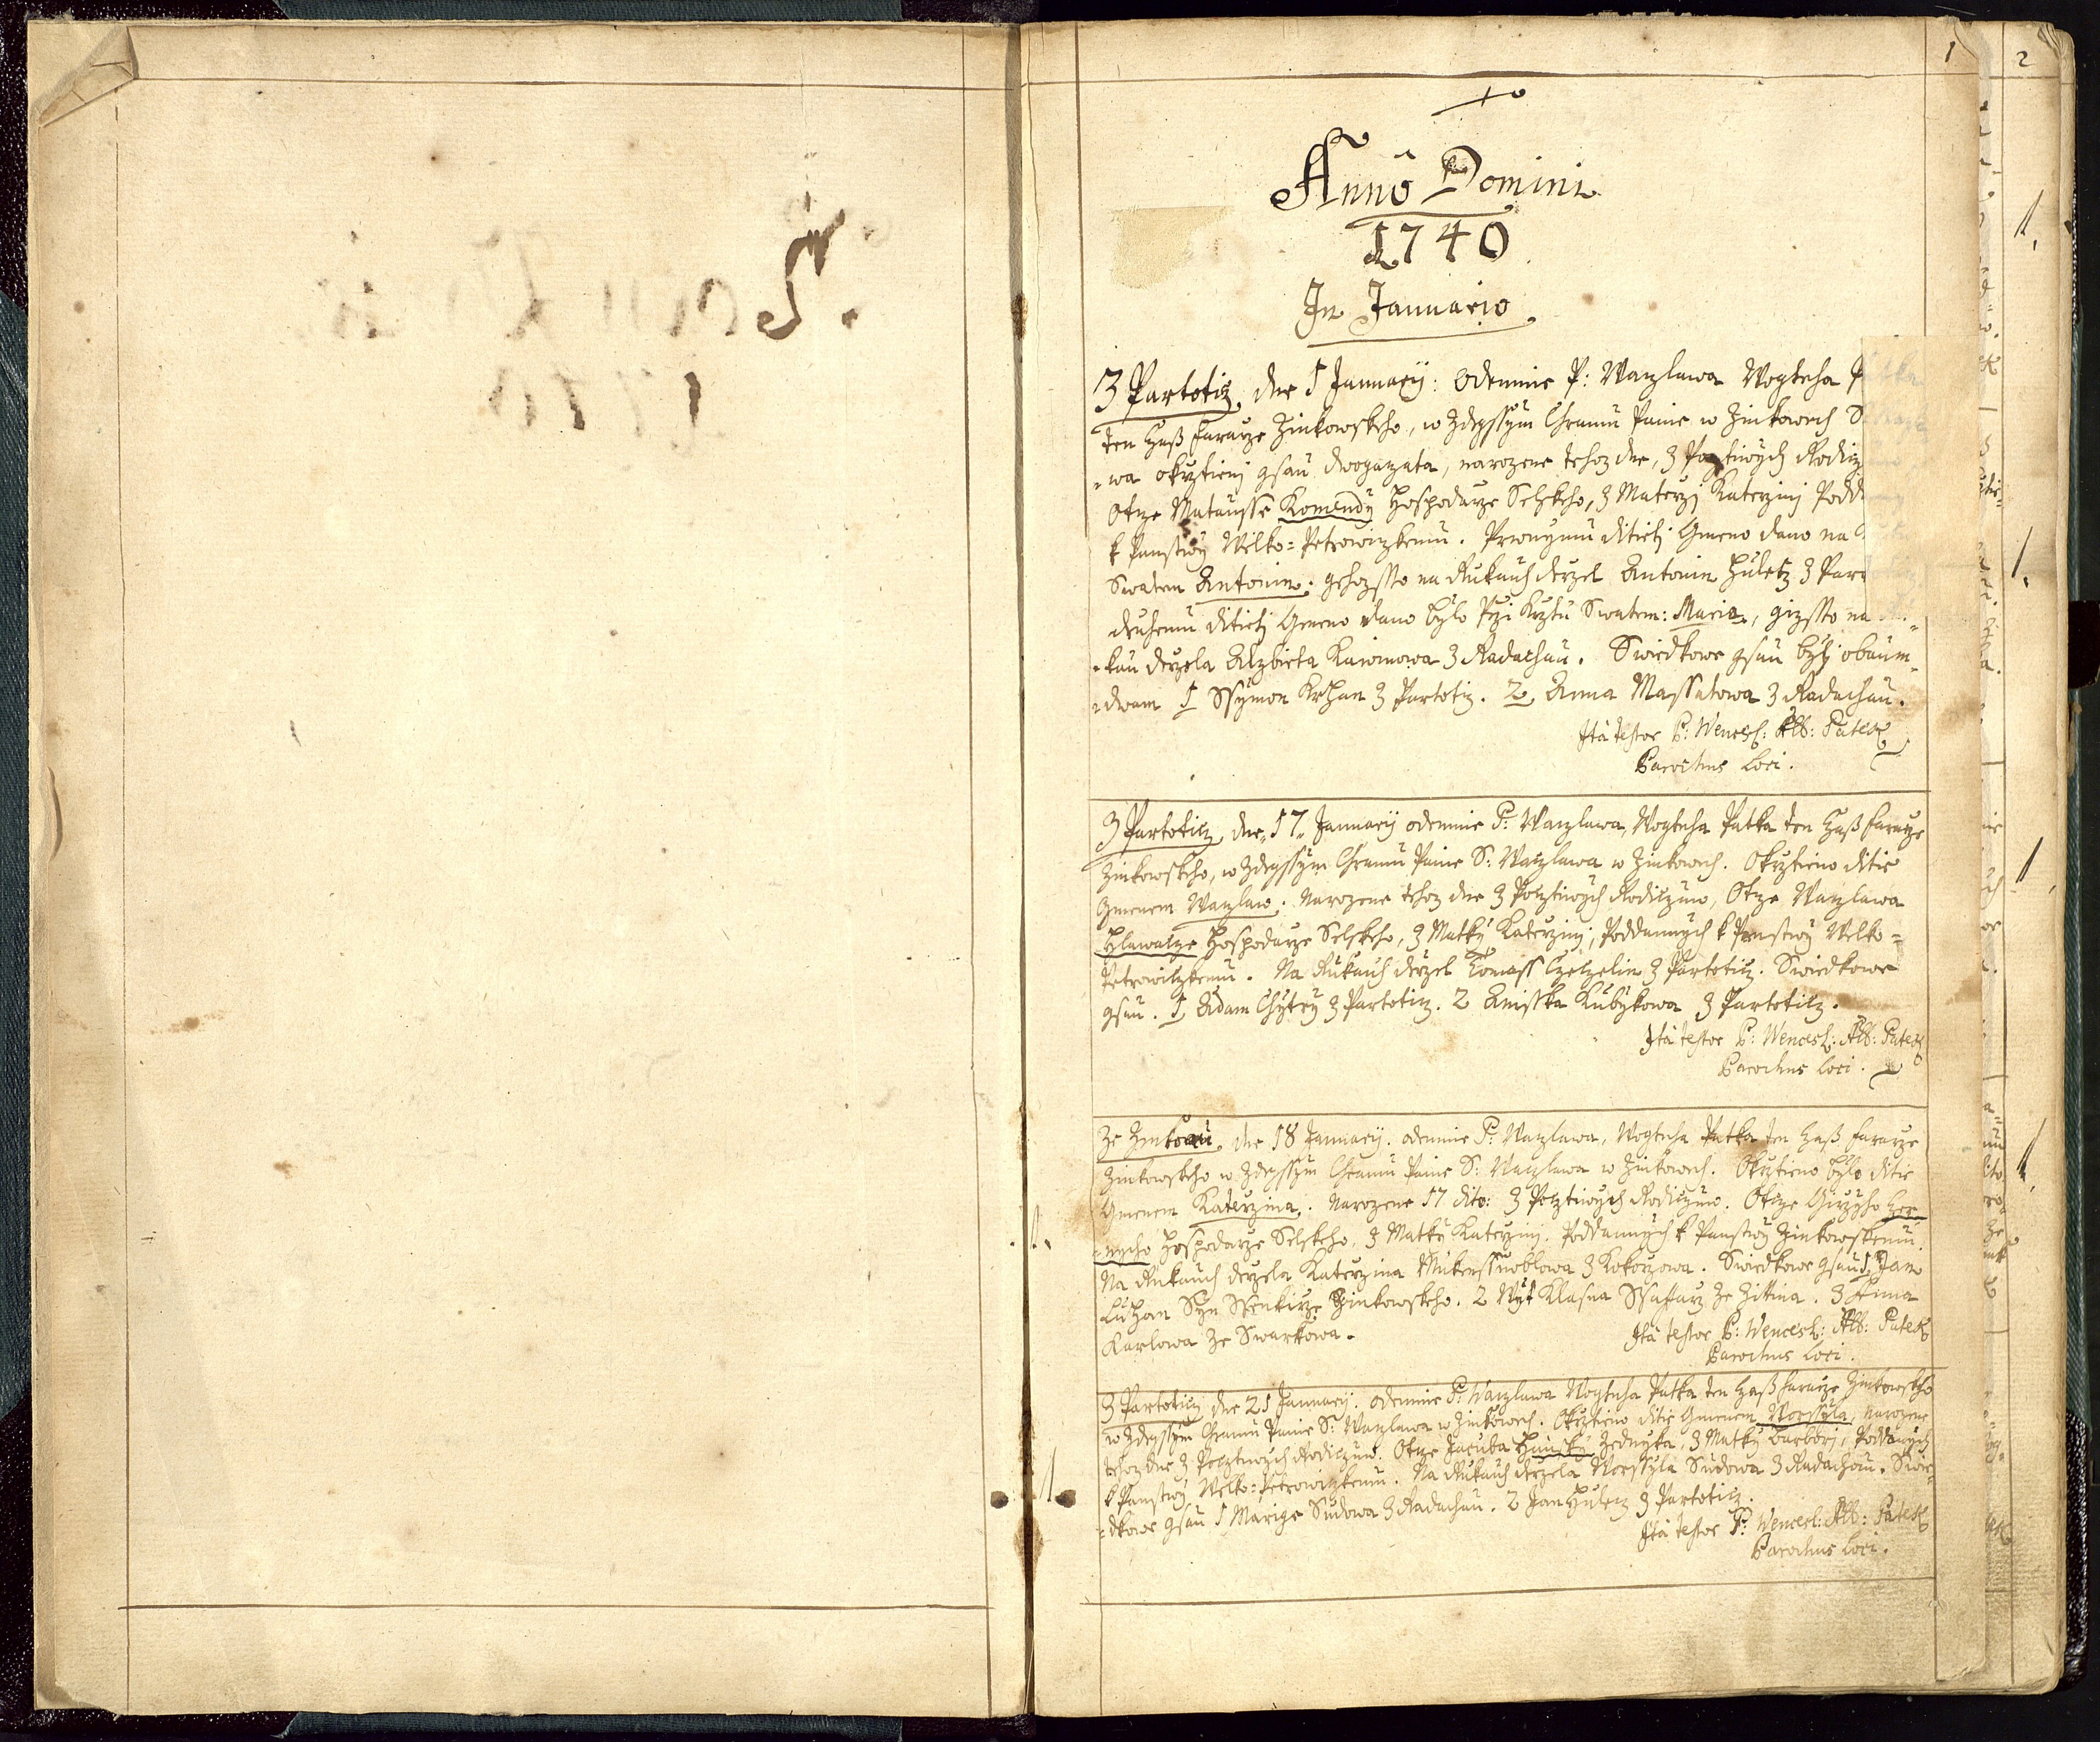 1
2
Anno Domini
1740
In Januario
Z Partotic, dne 1 Januarij: odemnie P: Waczlawa Wogtecha P
ten czaß Faraře Zinkowskeho, w zdegssym Chramu Panie w Zinkowech S
=wa okřtieni gsau dwogczata, narozene tehoz dne, z Pocztiwých Rodicz
Otcze Matausse Komendy Hospodarze Selskeho, z Materzj Katerzinj Podd
k Panstwj Welko=Petrowiczkemu. Prwnymu ditietj Gmeno dano na
Swatem Antonin. gehozsto na Rukauch drzel Antonin Huletz z Par
druhemu ditietj Gmeno dano bylo Přzi Křztu Swatem: Maria, gizsto na
=kau drzela Alzbieta Kawinowa z Radachau. Swiedkowe gsau byli obaum=
=dwam 1 Ssymon Krhan z Partotic. 2, Anna Massatowa z Radachau.
Ità testor P: Wencesl: Alb: Patek
Parochus Loci.
Z Partoticz, dne 17 Januarij odemnie P: Waczlawa Wogtecha Patka ten czaß Faraře
Zinkowskeho, w zdegssym Chramu Panie S: Waczlawa w Zinkowech. Okřztieno ditie
Gmenem Waczlaw. narozene tehoz dne z Pocztiwých Rodiczuw, Otcze Waczlawa
Hlawacze Hospodarze Selskeho, z Matky Katerzinj, Poddannych k Panstwj Welko=
Petrowiczkemu. Na Rukauch drzel Tomass Czelzelin z Partoticz. Swiedkowe
gsau. 1, Adam Chytrý z Partoticz. 2 Anisska Kubykowa z Partoticz.
Ità testor P: Wencesl: Alb: Patek
Parochus Loci.
Ze Zinkowi dne 18 Januarij. odemnie P: Waczlawa, Wogtecha Patka ten Czaß Faraře
Zinkowskeho w zdegssym Chramu Panie S: Waczlawa w Zinkowech. Okřtieno bylo ditie
Gmenem Katerzina. narozene 17 dito: z Pocztiwých Rodiczuw. Otcze Girzyho Czer
=nycho Hospodarze Selskeho, z Matky Katerzinj. Poddannych k Panstwj Zinkowskemu.
Na Rukauch drzela Katerzina Mukenssnoblowa z Kokorzowa. Swiedkowe gsau 1, Jan
Luhan Syn Ssenkirze Zinkowskeho. 2 Wýt Klasna Ssaffarz ze Zittina. 3 Anna
Karlowa ze Swarkowa.
Ità testor P: Wencesl: Alb: Patek
Parochus Loci.
Z Partoticz dne 21 Januarij. odemnie P: Waczlawa Wogtecha Patka ten Czaß Faraře Zinkowskeho
w zdegssym Chramu Panie S: Waczlawa w Zinkowech. Okřztieno ditie Gmenem Worssyla, narozene
tehoz dne z Pocztiwých Rodiczuw. Otcze Jacuba Hunsky Zednyka, z Matky Barborj, Poddaných
k Panstwj Welko=Petrowiczkemu. Na Rukauch drzela Worssyla Sudowa z Radachau. Swie=
=dkowe gsau 1 Marige Sudowa z Radachau. 2 Jan Huletz z Partoticz.
Ità testor P: Wencesl: Alb: Patek
Parochus Loci.